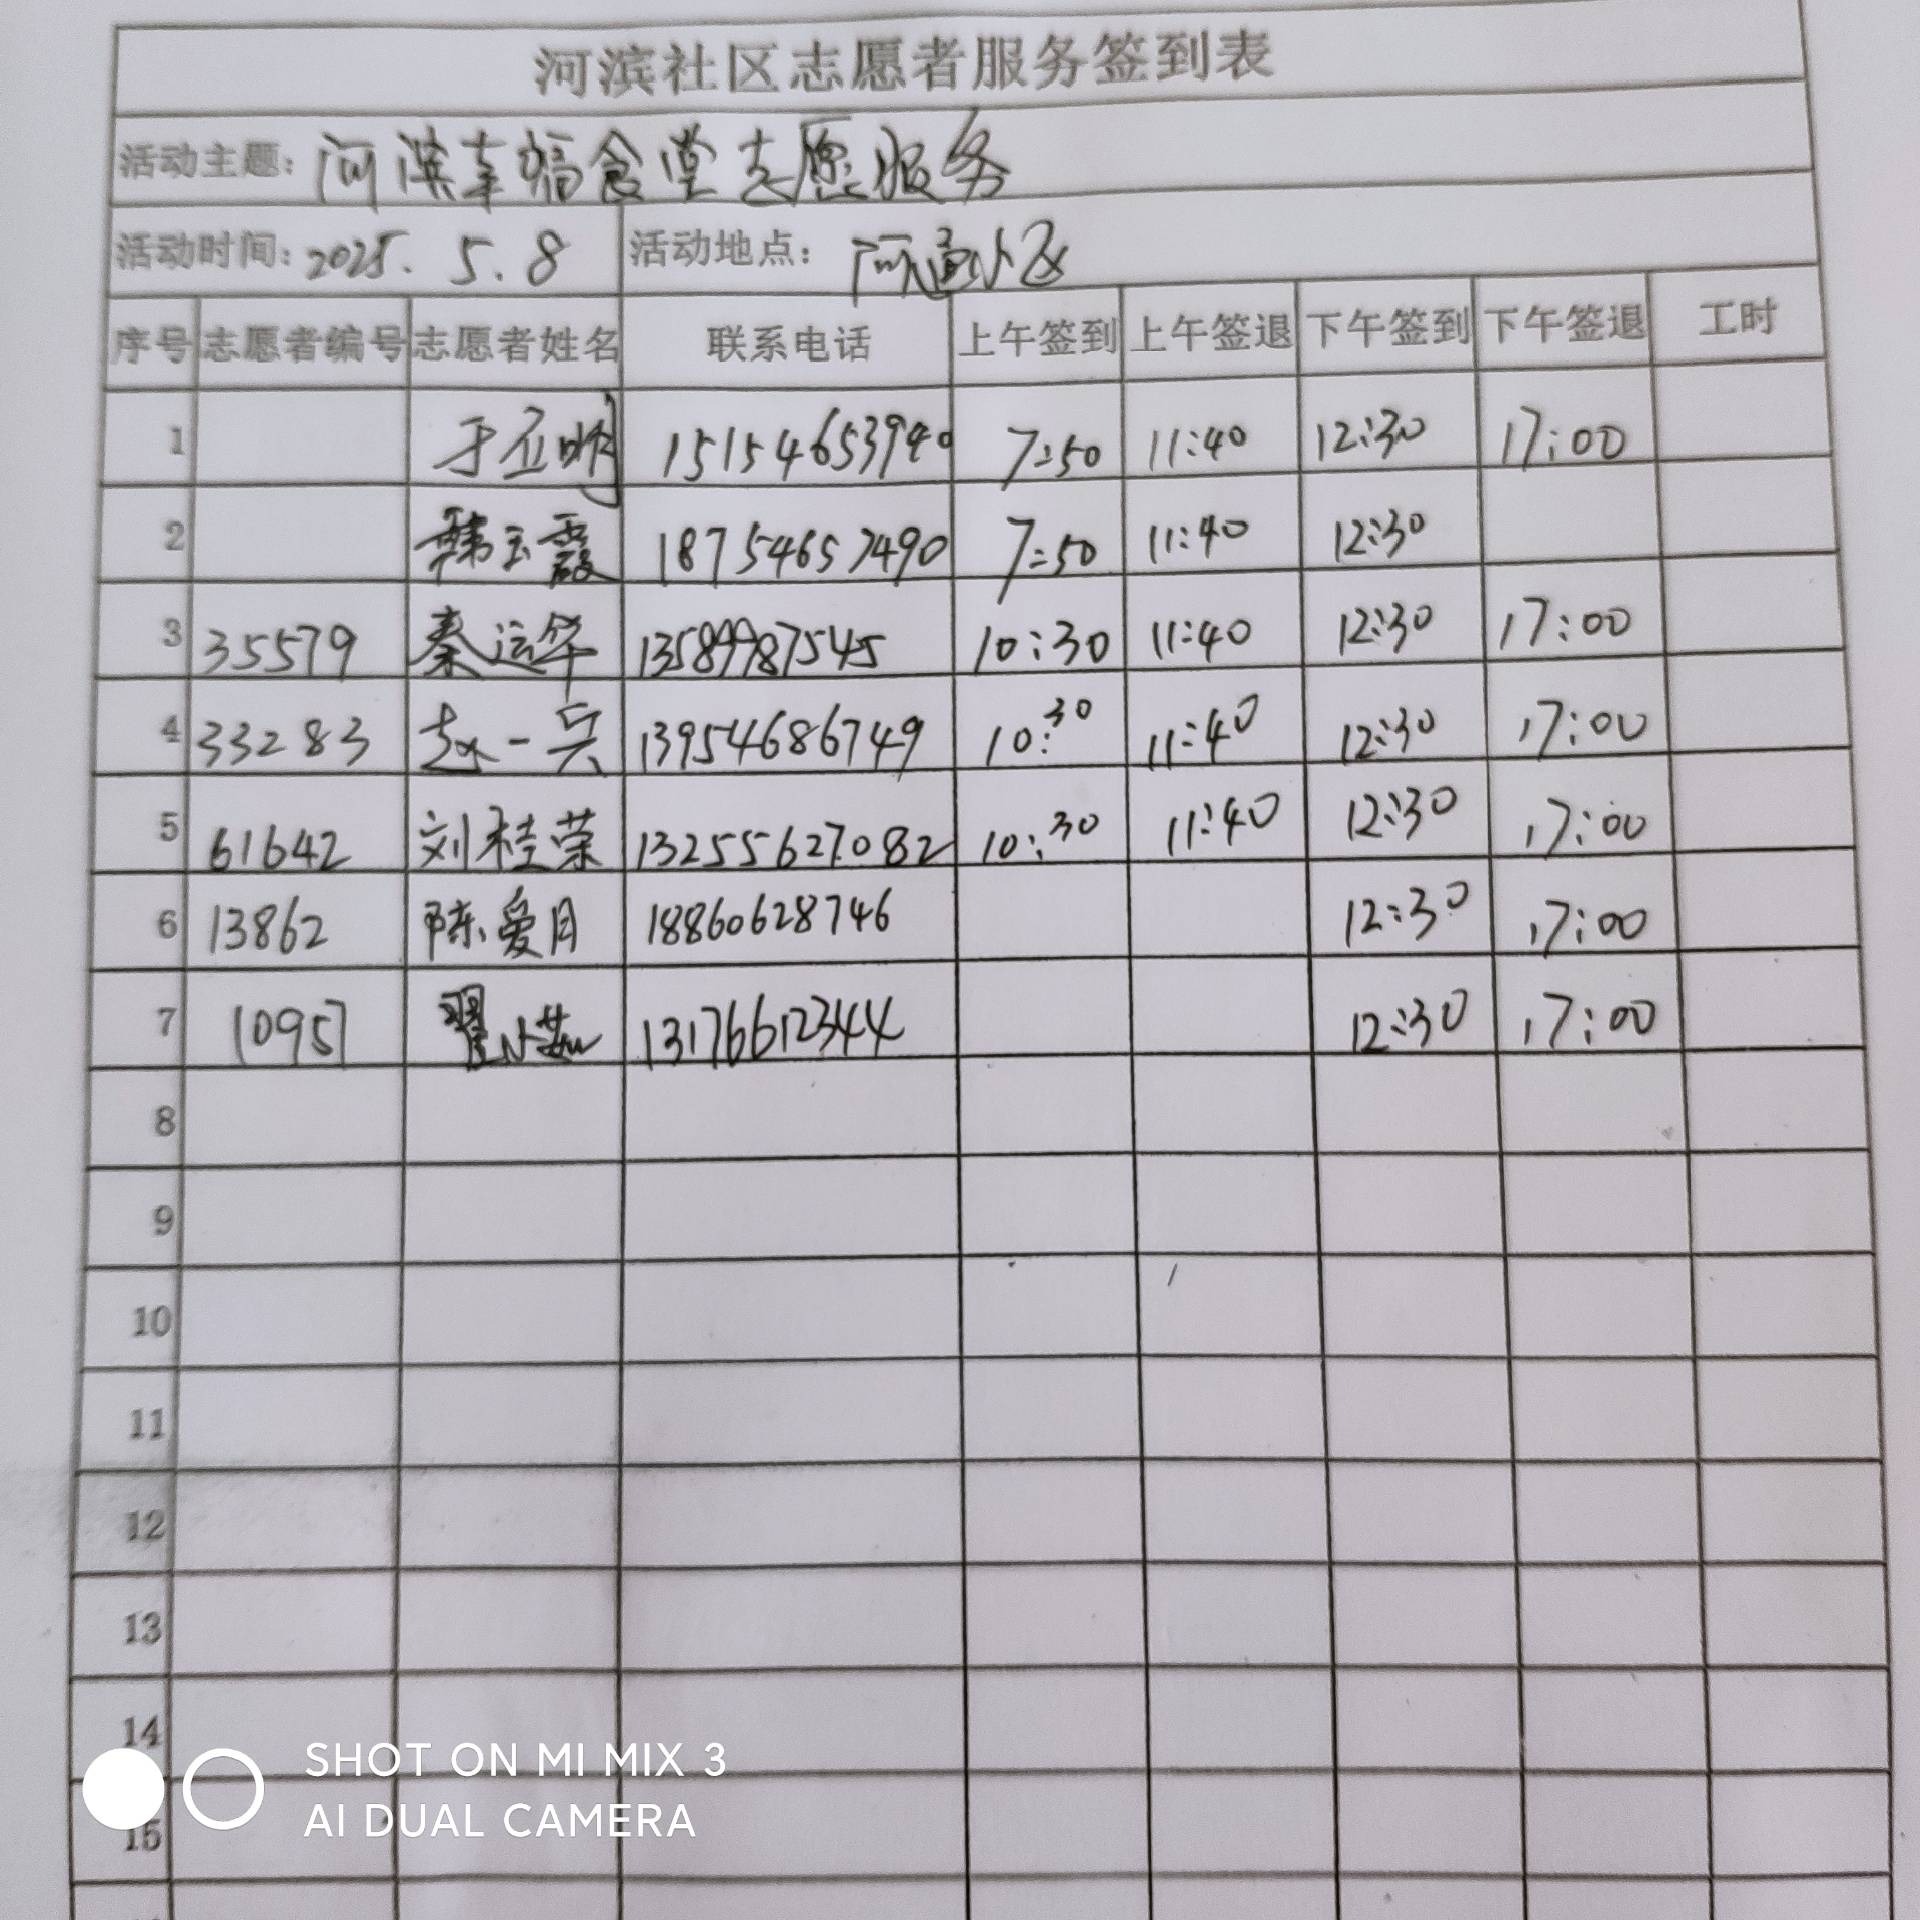 河滨社区志愿者服务签到表
活动主题: 河滨幸福食堂志愿服务
活动时间: 2025. 5. 8 活动地点: 小区
序号 志愿者编号 志愿者姓名 联系电话 上午签到 上午签退 下午签到 下午签退 工时
1 15154653940 7:50 11:40 12:30 17:00
2 韩玉霞 18754657490 7:50 11:40 12:30
3 35579 秦运华 13589987545 10:30 11:40 12:30 17:00
4 33283 赵一兵 13954686749 10:30 11:40 12:30 17:00
5 61642 刘桂荣 13255627082 10:30 11:40 12:30 17:00
6 13862 陈爱月 18860628746 12:30 17:00
7 10957 翟小茹 13176612344 12:30 17:00
8
9
10
11
12
13
14
SHOT ON MI MIX 3
AI DUAL CAMERA
15